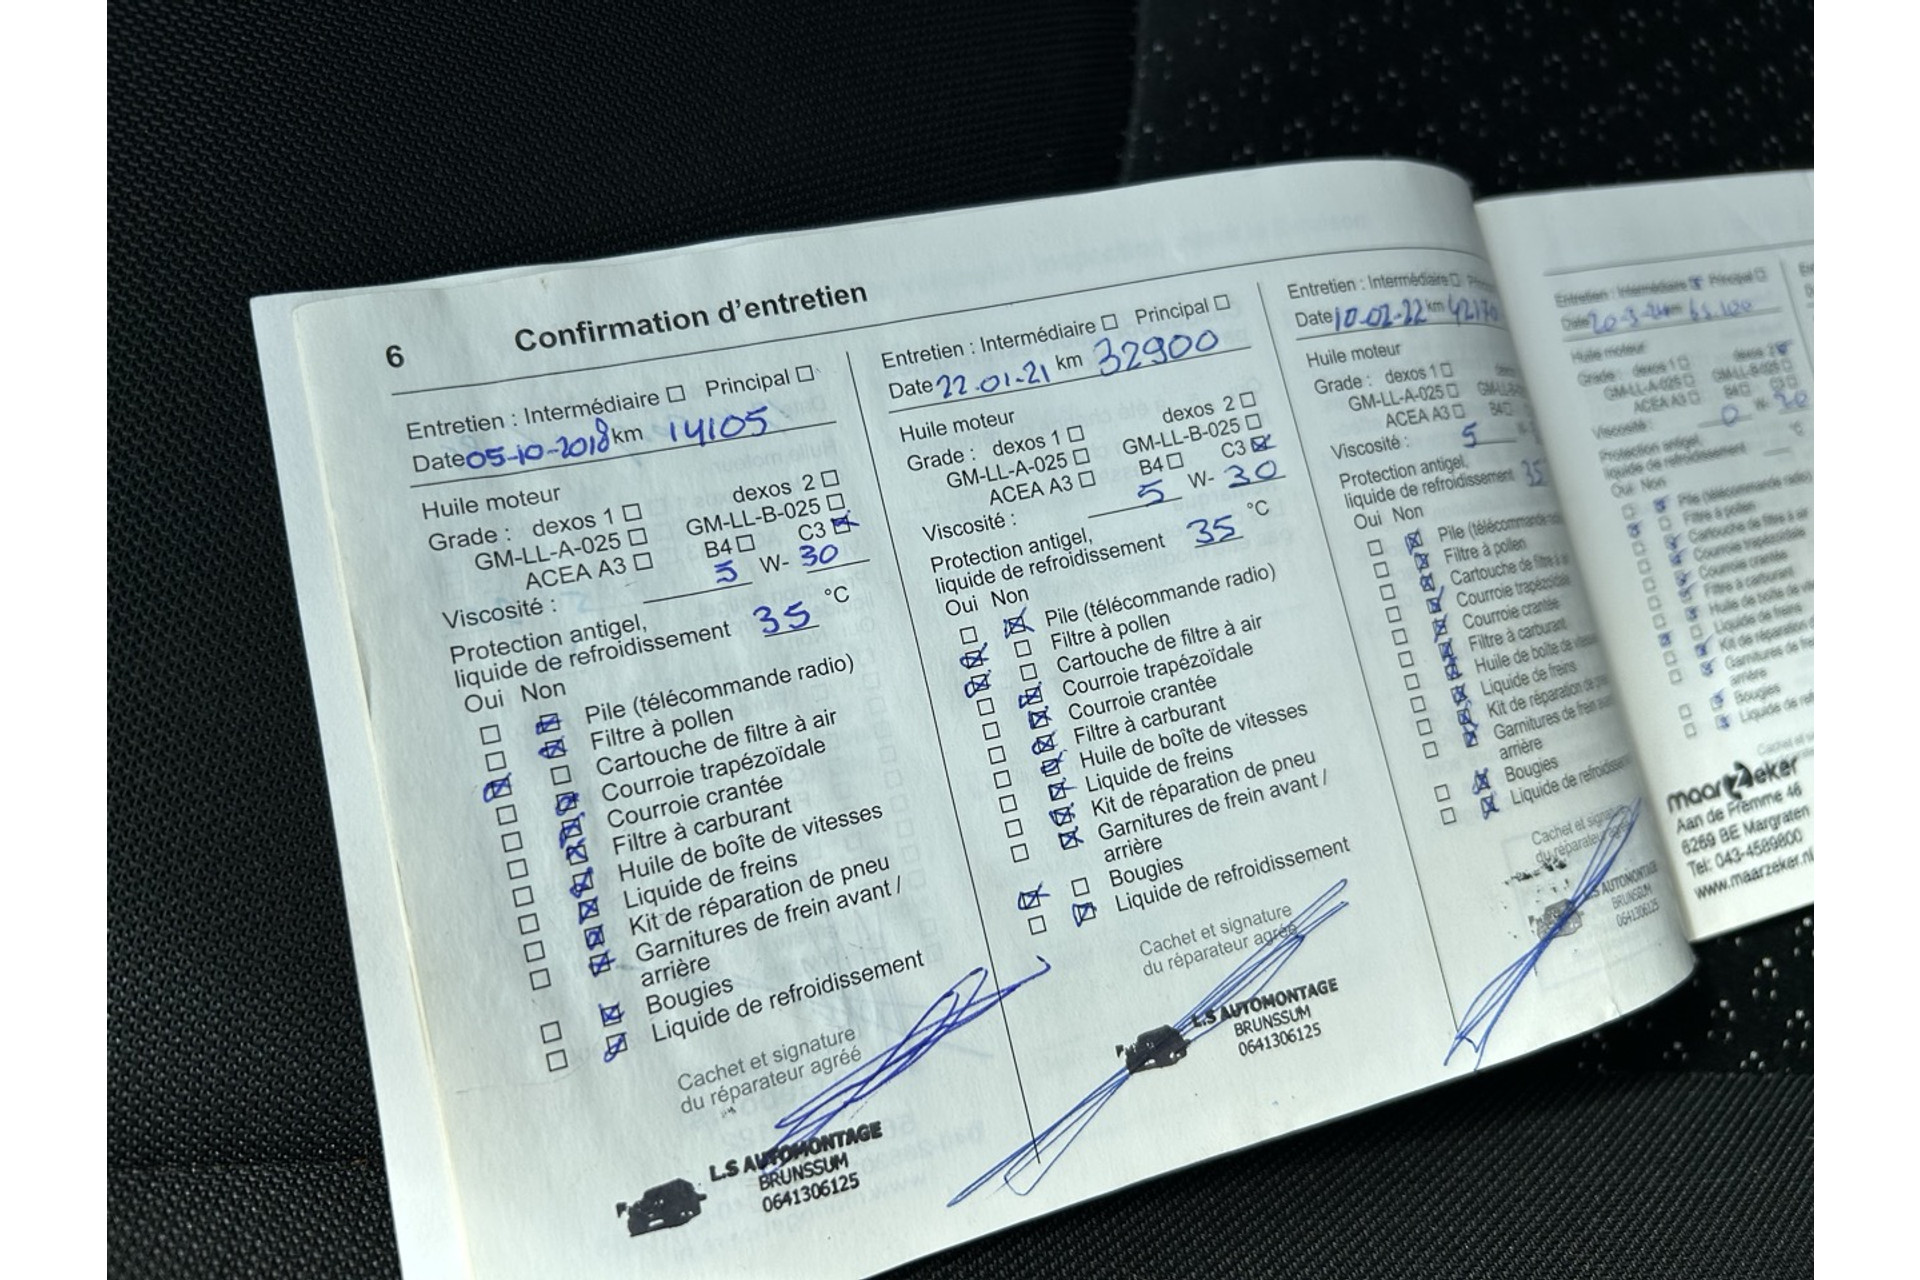 6 Confirmation d'entretien
Entretien : Intermédiaire □ Principal □
Date 05-10-2018 km 14105
Huile moteur
Grade : dexos 1 □ dexos 2 □
GM-LL-A-025 □ GM-LL-B-025 □
ACEA A3 □ B4 □ C3 ☒
Viscosité : 5 W- 30
Protection antigel,
liquide de refroidissement 35 °C
Oui Non
□ ☒ Pile (télécommande radio)
□ ☒ Filtre à pollen
☒ □ Cartouche de filtre à air
□ ☒ Courroie trapézoïdale
□ ☒ Courroie crantée
□ ☒ Filtre à carburant
□ ☒ Huile de boîte de vitesses
□ ☒ Liquide de freins
□ ☒ Kit de réparation de pneu
□ ☒ Garnitures de frein avant /
arrière
□ ☒ Bougies
□ ☒ Liquide de refroidissement
Cachet et signature
du réparateur agréé
L.S AUTOMONTAGE
BRUNSSUM
0641306125
Entretien : Intermédiaire □ Principal □
Date 22-01-21 km 32900
Huile moteur
Grade : dexos 1 □ dexos 2 □
GM-LL-A-025 □ GM-LL-B-025 □
ACEA A3 □ B4 □ C3 ☒
Viscosité : 5 W- 30
Protection antigel,
liquide de refroidissement 35 °C
Oui Non
□ ☒ Pile (télécommande radio)
☒ □ Filtre à pollen
☒ □ Cartouche de filtre à air
□ ☒ Courroie trapézoïdale
□ ☒ Courroie crantée
□ ☒ Filtre à carburant
□ ☒ Huile de boîte de vitesses
□ ☒ Liquide de freins
□ ☒ Kit de réparation de pneu
□ ☒ Garnitures de frein avant /
arrière
☒ □ Bougies
□ ☒ Liquide de refroidissement
Cachet et signature
du réparateur agréé
L.S AUTOMONTAGE
BRUNSSUM
0641306125
Entretien : Intermédiaire □
Date 10-02-22 km
Huile moteur
Grade : dexos 1 □
GM-LL-A-025 □
ACEA A3 □ B4 □
Viscosité : 5
Protection antigel,
liquide de refroidissement 35
Oui Non
□ ☒ Pile (télécommande
□ ☒ Filtre à pollen
□ ☒ Cartouche de filtre à
□ ☒ Courroie trapézoïdale
□ ☒ Courroie crantée
□ ☒ Filtre à carburant
□ ☒ Huile de boîte de
□ ☒ Liquide de freins
□ ☒ Kit de réparation de
□ ☒ Garnitures de frein
arrière
□ ☒ Bougies
□ ☒ Liquide de
Cachet et
du réparateur
L.S AUTOMONTAGE
BRUNSSUM
0641306125
Entretien : Intermédiaire Principal □
Huile moteur
Grade : dexos 1 □ dexos 2
GM-LL-A-025 □ GM-LL-B-025 □
ACEA A3 □ B4 □ C3 □
Viscosité : 0 W-
Protection antigel,
liquide de refroidissement °C
Oui Non
Pile (télécommande radio)
Filtre à pollen
Cartouche de filtre à air
Courroie trapézoïdale
Courroie crantée
Filtre à carburant
Huile de boîte de
Liquide de freins
Kit de réparation
Garnitures de
arrière
Bougies
Liquide de
Cachet et
maarZeker
Aan de Fremme 46
6269 BE Margraten
Tel: 043-4589800
www.maarzeker.nl